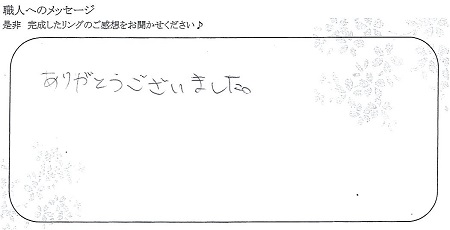 職人へのメッセージ
是非 完成したリングのご感想をお聞かせください♪
ありがとうございました。